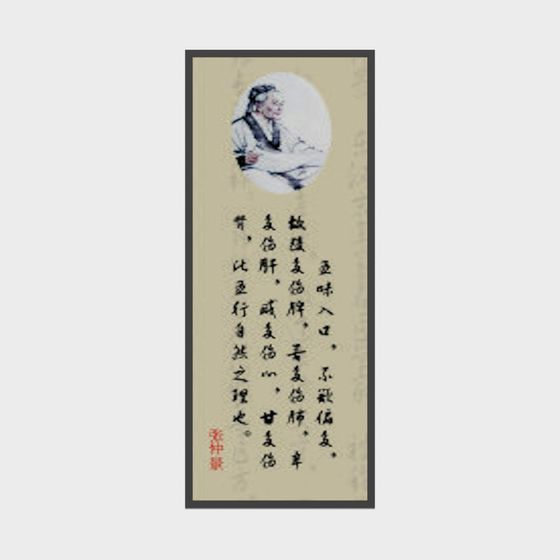 五味入口，不欲偏多，
故酸多伤脾，苦多伤肺，辛
多伤肝，咸多伤心，甘多伤
肾，此五行自然之理也。
张仲景